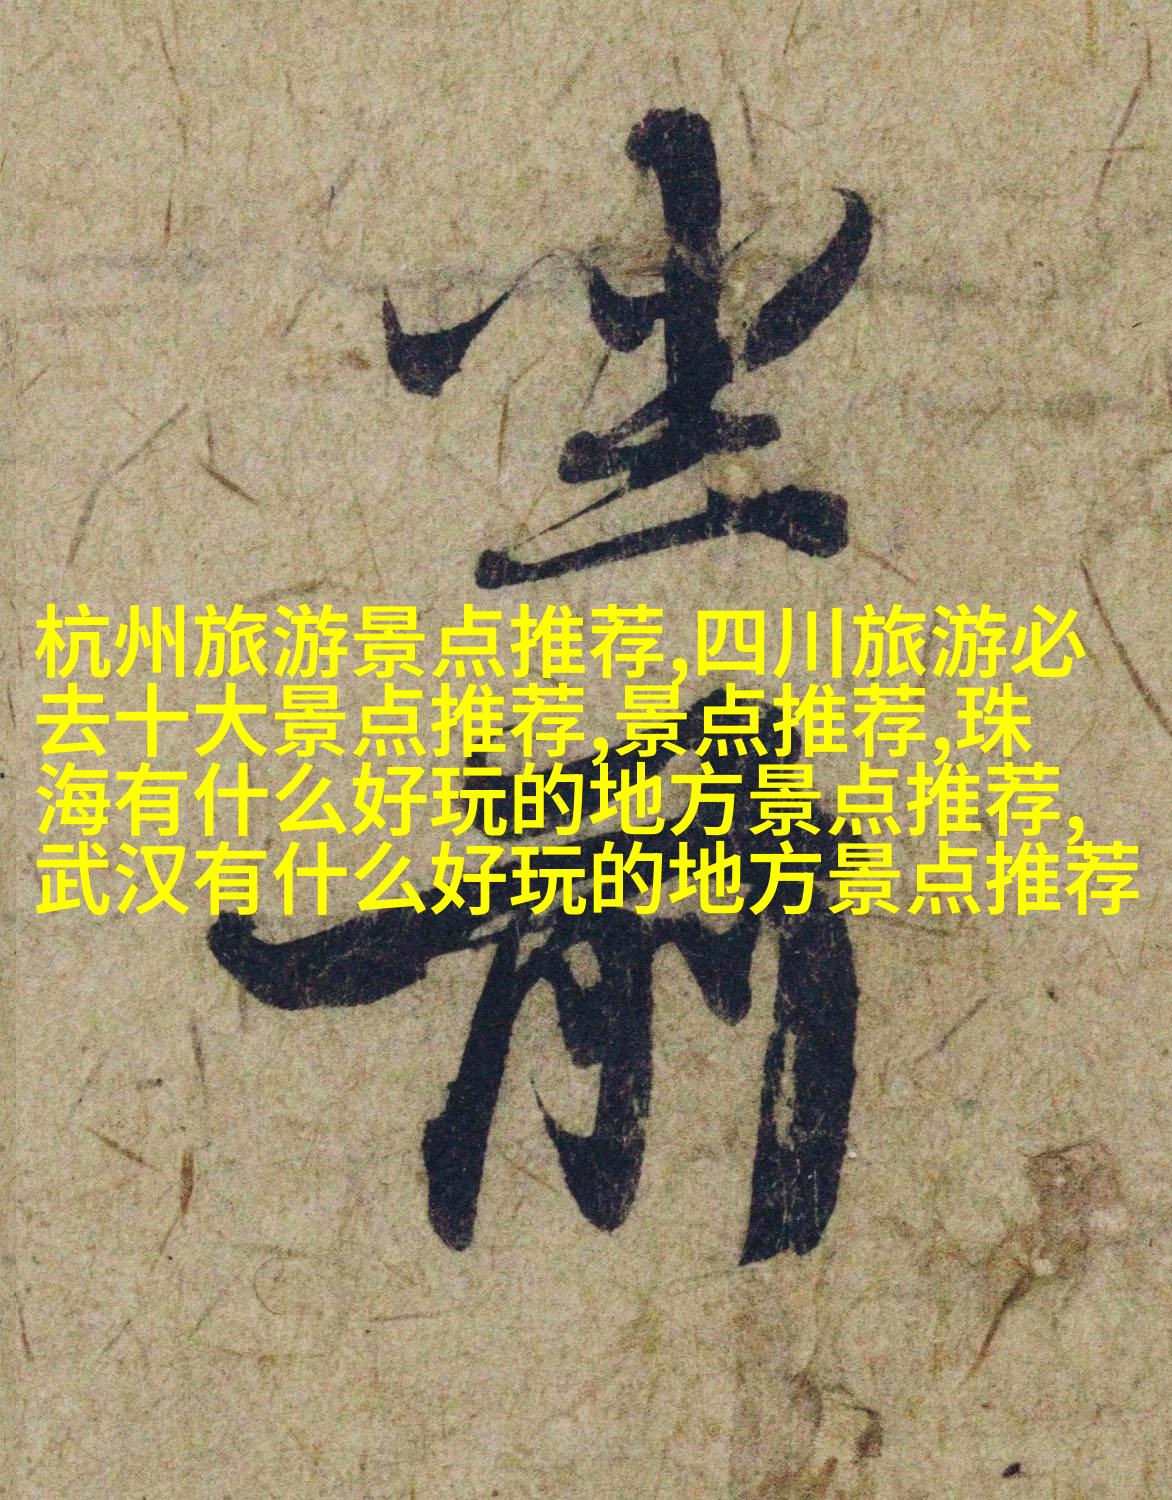 杭州旅游景点推荐,四川旅游必
去十大景点推荐,景点推荐,珠
海有什么好玩的地方景点推荐,
武汉有什么好玩的地方景点推荐